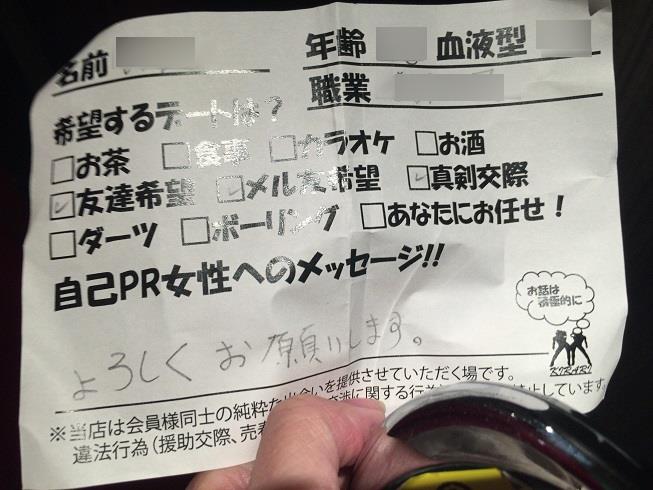 名前 年齢 血液型
職業
希望するデートは?
□お茶 □食事 □カラオケ □お酒
☑友達希望 ☑メル友希望 ☑真剣交際
□ダーツ □ボーリング □あなたにお任せ!
自己PR女性へのメッセージ!!
お話は
積極的に
KIRARI
よろしくお願いします。
※当店は会員様同士の純粋な出会いを提供させていただく場です。
違法行為(援助交際、売春 交渉に関する行為 止しています